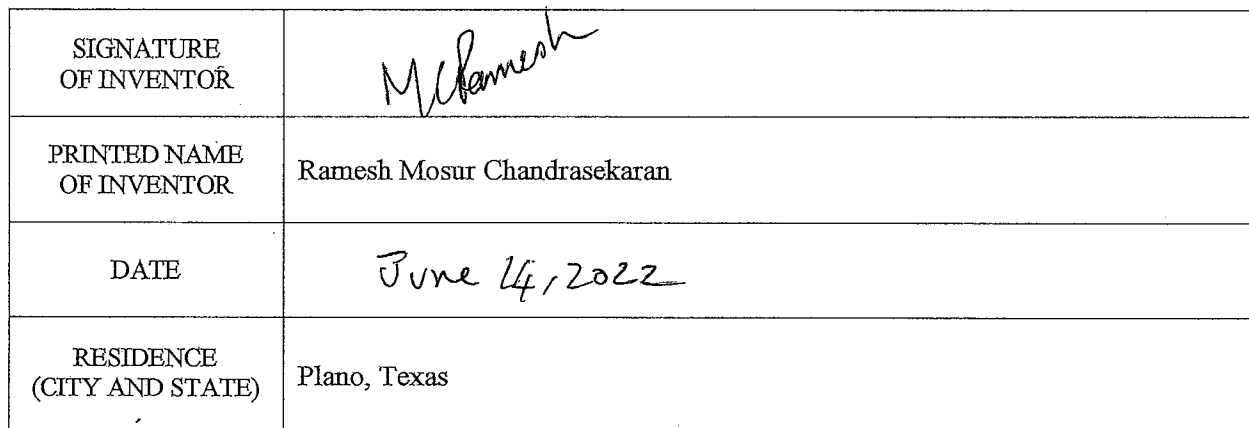 SIGNATURE
OF INVENTOR
MCRamesh
PRINTED NAME
OF INVENTOR
Ramesh Mosur Chandrasekaran
DATE
June 14, 2022
RESIDENCE
(CITY AND STATE)
Plano, Texas